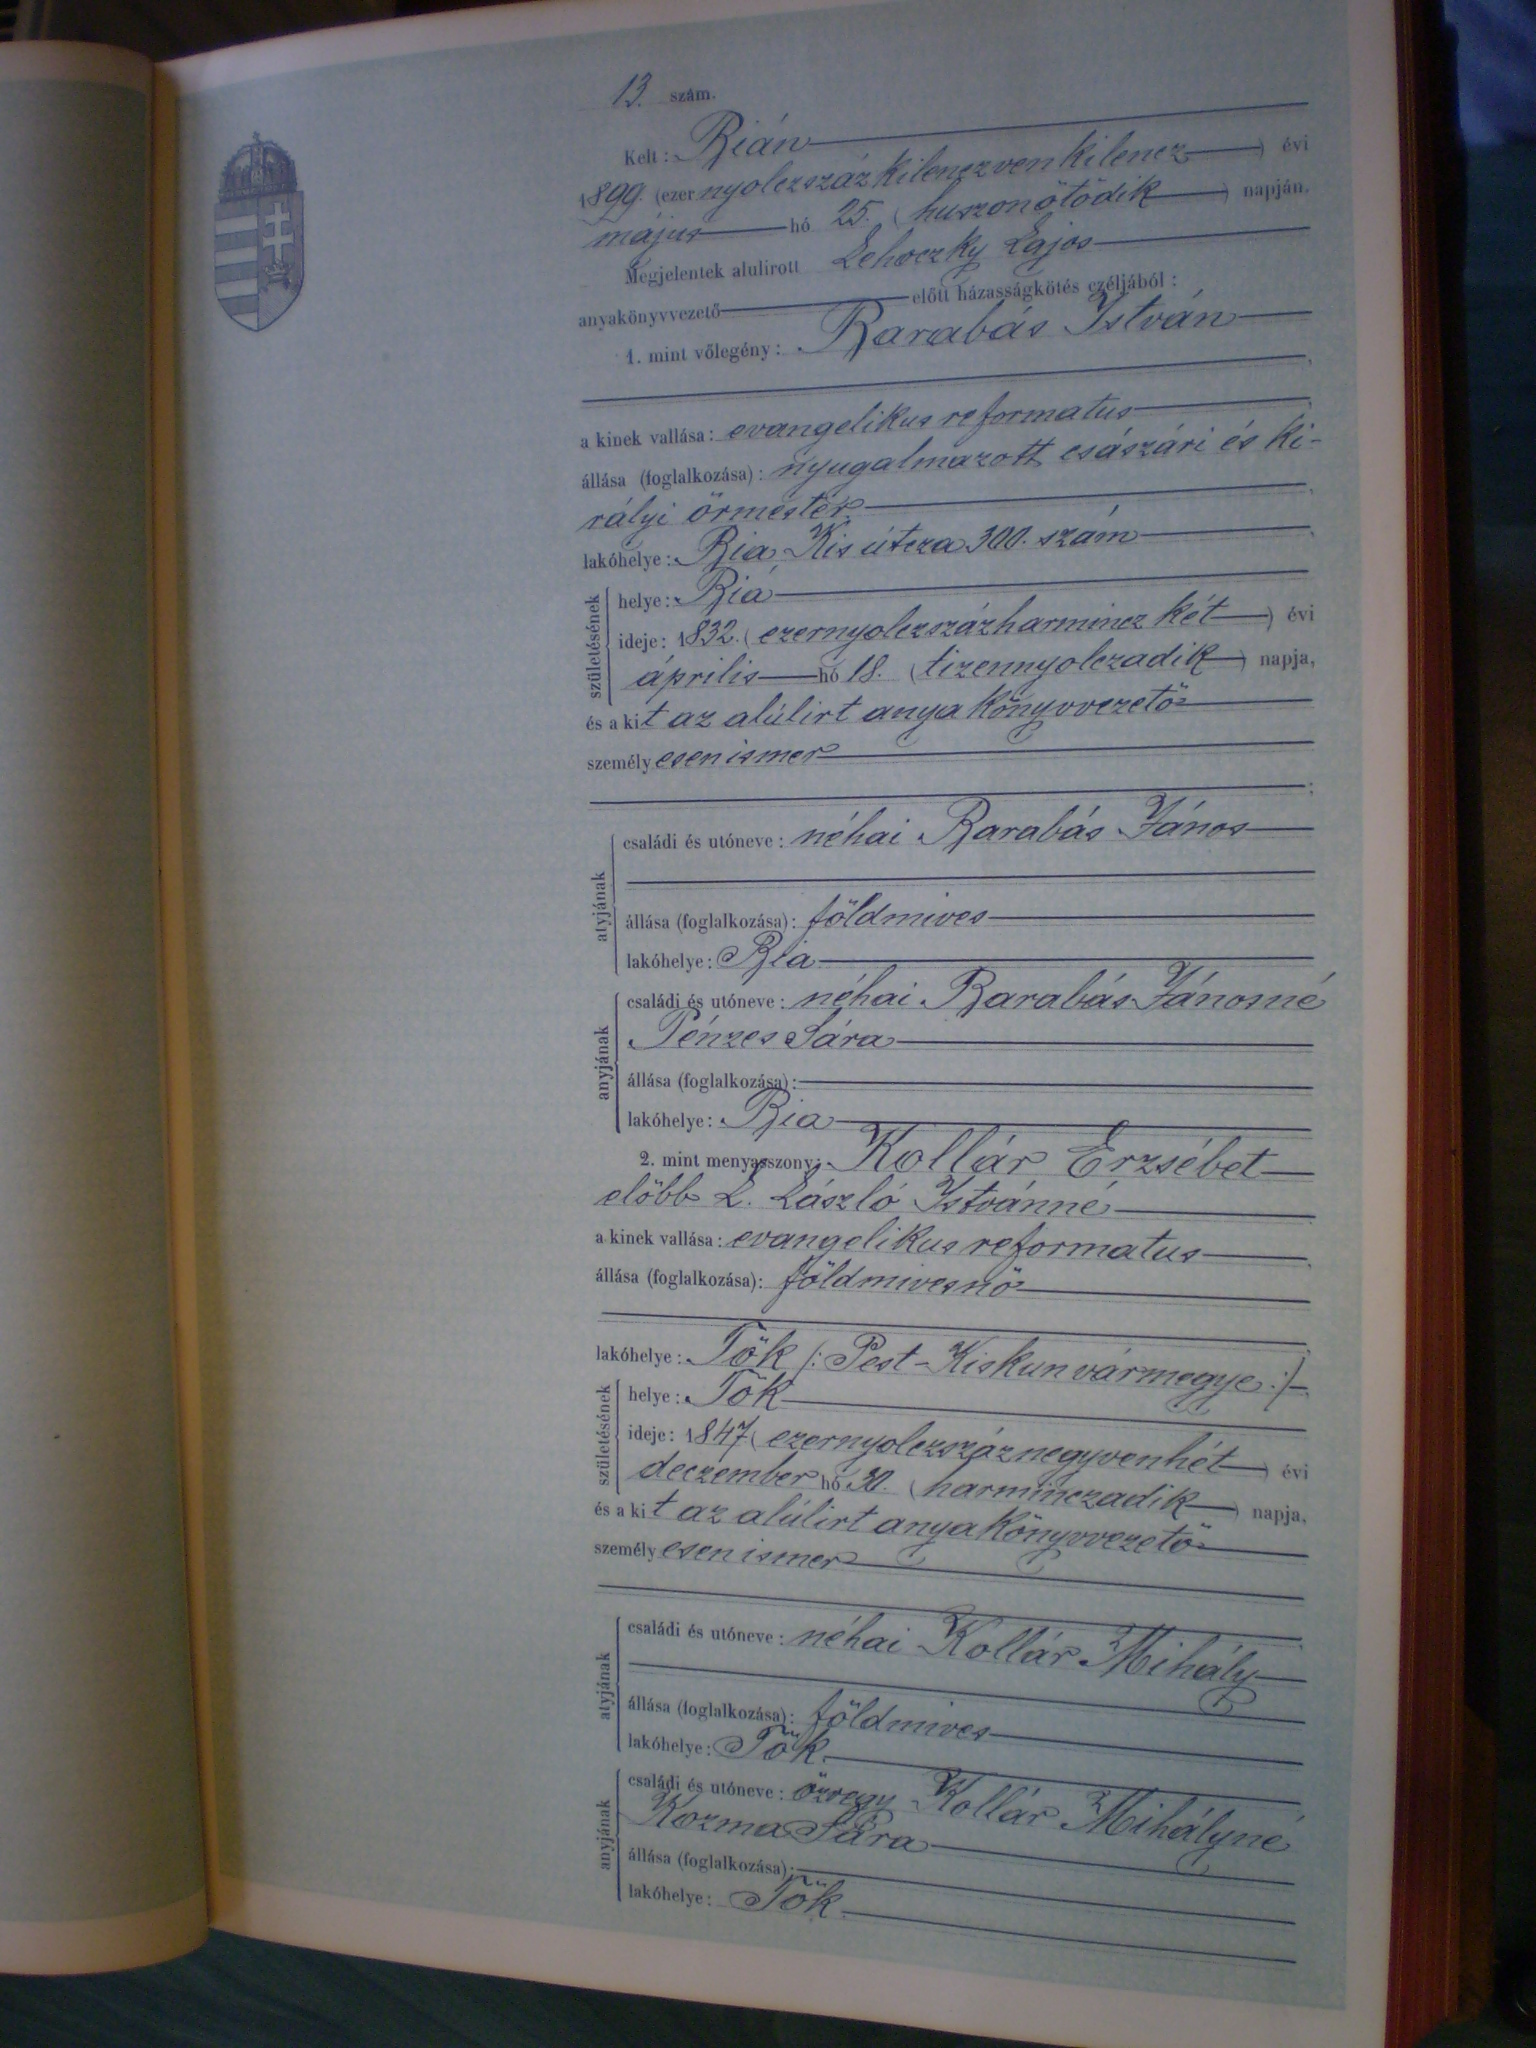 13. szám.
Kelt: Bián
1899. (ezer nyolczszáz kilenczven kilencz) évi
május hó 25. (huszonötödik) napján.
Megjelentek alulirott Lehoczky Lajos
anyakönyvvezető előtt házasságkötés czéljából:
1. mint vőlegény: Barabás István
a kinek vallása: evangelikus reformatus
állása (foglalkozása): nyugalmazott császári és ki-
rályi örmester
lakóhelye: Bia Kis útcza 300. szám
születésének
helye: Biá
ideje: 1832. (ezernyolczszázharmincz két) évi
április hó 18. (tizennyolczadik) napja,
és a kit az alúlirt anyakönyvvezetö
személyesen ismer
atyjának
családi és utóneve: néhai Barabás János
állása (foglalkozása): földmives
lakóhelye: Bia
anyjának
családi és utóneve: néhai Barabás Jánosné
Pénzes Sára
állása (foglalkozása):
lakóhelye: Bia
2. mint menyasszony: Kollár Erzsébet
elöbb L. László Istvánné
a kinek vallása: evangelikus reformatus
állása (foglalkozása): földmivesnö
lakóhelye: Tök (: Pest-Kiskun vármegye :)
születésének
helye: Tök
ideje: 1847 (ezernyolczszáznegyvenhét) évi
deczember hó 30. (harminczadik) napja,
és a kit az alúlirt anyakönyvvezetö
személyesen ismer
atyjának
családi és utóneve: néhai Kollár Mihály
állása (foglalkozása): földmives
lakóhelye: Tök
anyjának
családi és utóneve: özvegy Kollár Mihályné
Kozma Sára
állása (foglalkozása):
lakóhelye: Tök